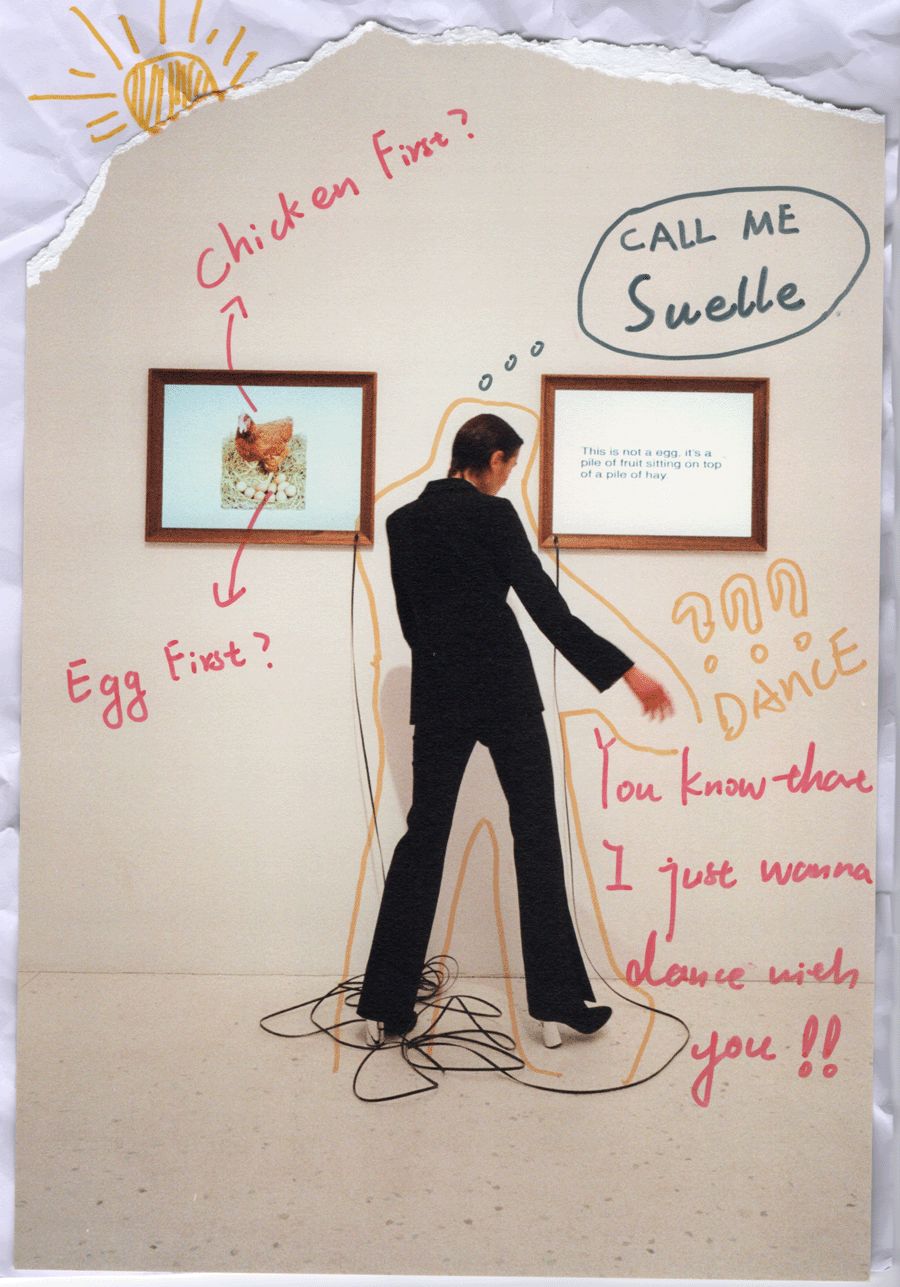 Chicken First?
CALL ME
Suelle
This is not a egg, it's a
pile of fruit sitting on top
of a pile of hay.
Egg First?
???
DANCE
You know that
I just wanna
dance with
you !!